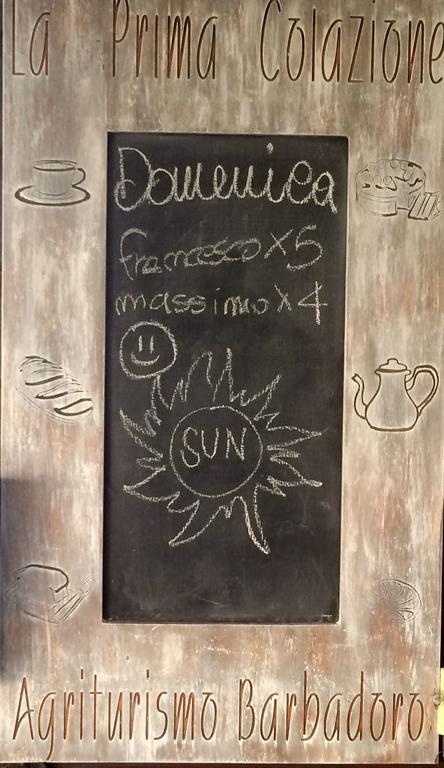 La Prima Colazione
Domenica
francesco x 5
massimo x 4
SUN
Agriturismo Barbadoro